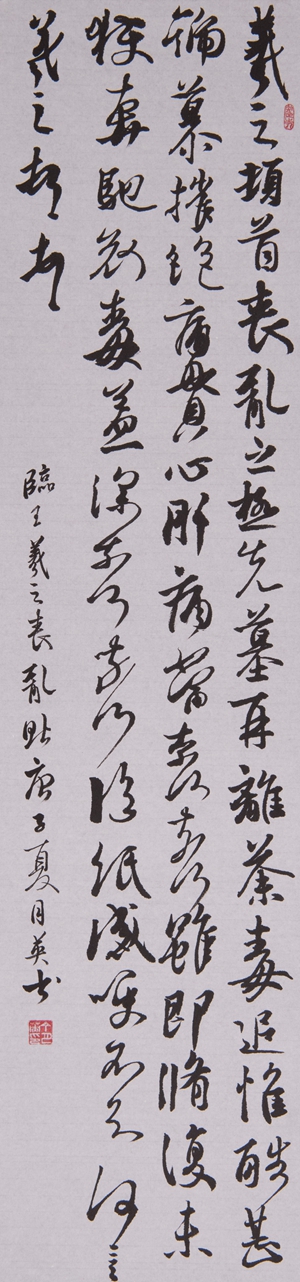 羲之頓首喪亂之極先墓再離荼毒追惟酷甚
號慕摧絕痛貫心肝痛當奈何奈何雖即脩復未
獲奔馳哀毒益深奈何奈何臨紙感哽不知何言
羲之頓首頓首
臨王羲之喪亂帖庚子夏月英书